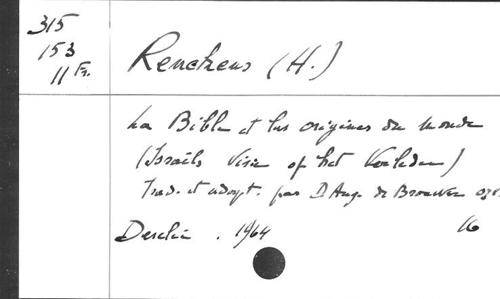 315
153
11 Fr.
Renckens (H.)
La Bible et les origines du monde
(Israëls Visie op het Verleden)
Trad. et adapt. par D Aug. de Brouwer
Desclée . 1964 16